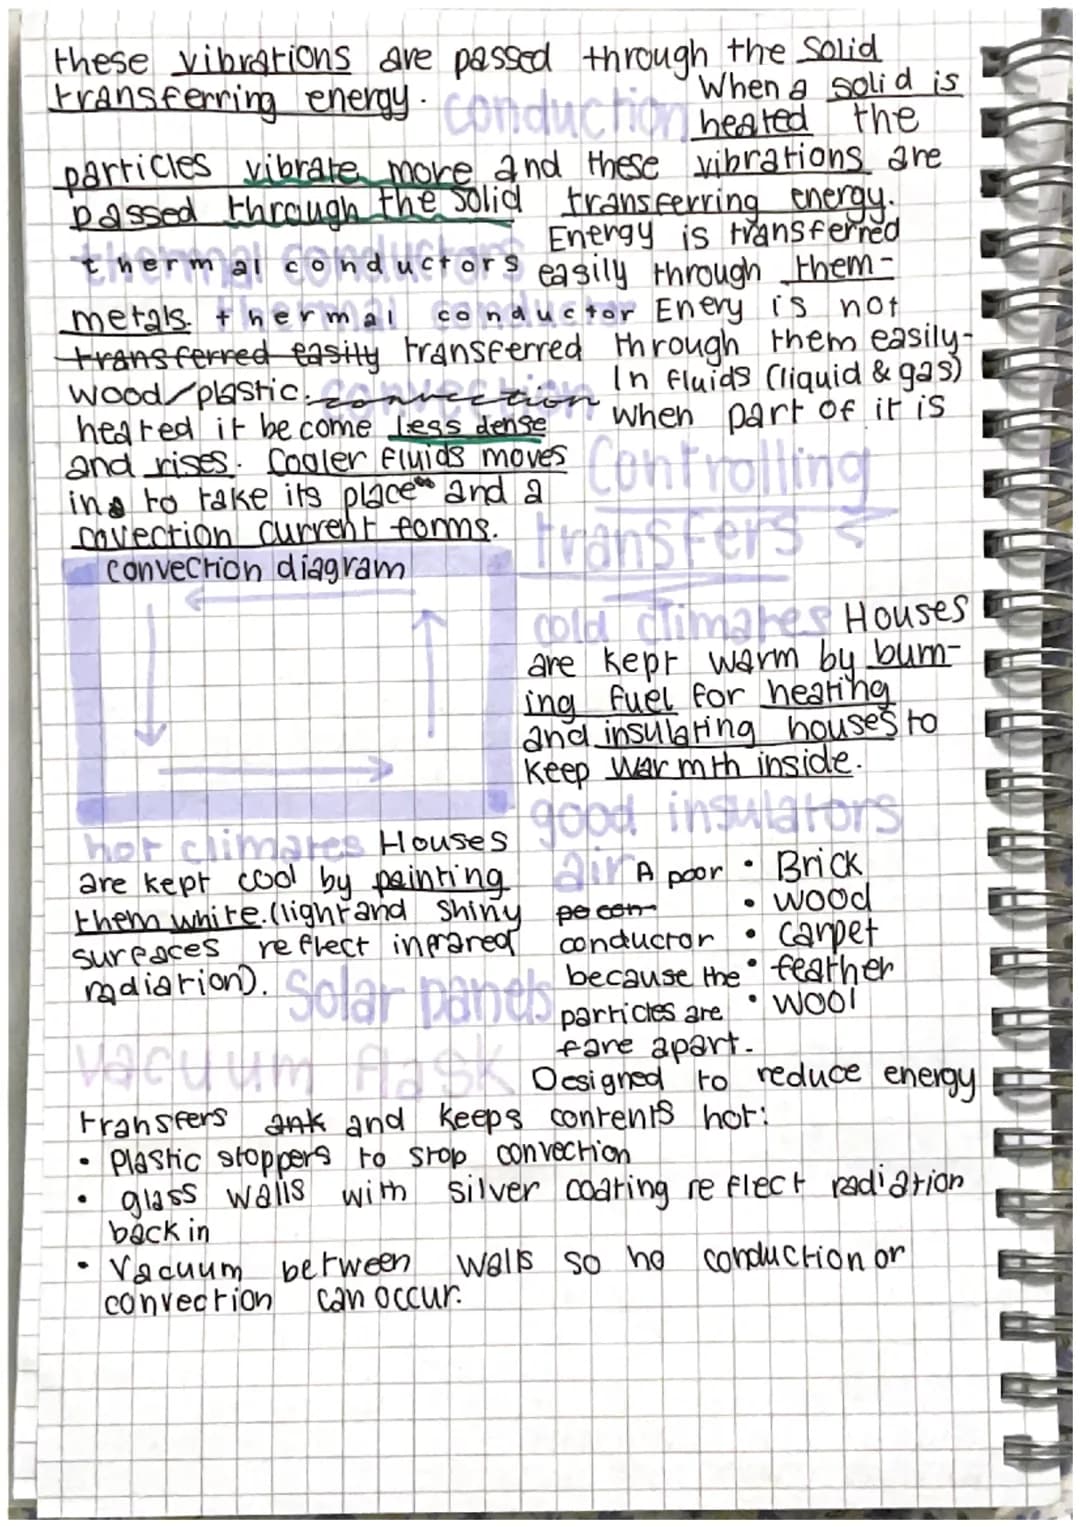 these vibrations are passed through the solid
transferring energy.
conduction When a solid is
heated the
particles vibrate more and these vibrations are
passed through the solid transferring energy.
thermal conductors Energy is transferred
thermal conductors easily through them-
metals. thermal conductor Enery is not
transferred easily transferred through them easily-
wood/plastic. convection In fluids (liquid & gas)
convection when part of it is
heated it become less dense
and rises. Cooler fluids moves
in to take its place and a
covection current forms.
Controlling
transfers
convection diagram
cold climates Houses
are kept warm by burn-
ing fuel for heating
and insulating houses to
keep warmth inside.
hot climates Houses
are kept cool by painting
them white. (light and shiny
surfaces reflect infrared
radiation).
good insulators
air A poor
conductor
because the
particles are
fare apart.
• Brick
• wood
• carpet
• feather
• wool
Solar panels
vacuum flask
Designed to reduce energy
transfers ank and keeps contents hot:
• Plastic stoppers to stop convection
• glass walls with silver coating reflect radiation
back in
• Vacuum between walls so no conduction or
convection can occur.